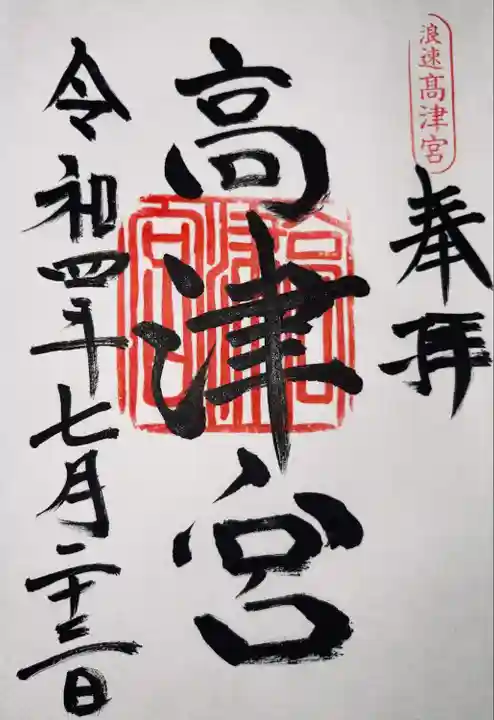 浪速高津宮
奉拝
高津宮
高津宮
令和四年七月二十三日